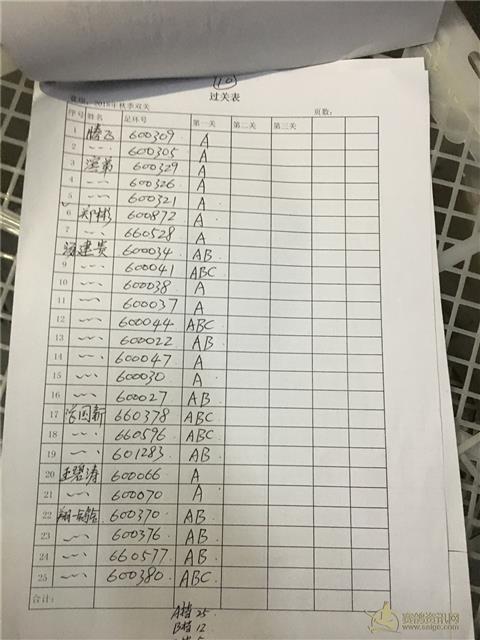 10
过关表
2018年秋季双关 页数：
序号 姓名 足环号 第一关 第二关 第三关
1 腾飞 600309 A
2 〃 600305 A
3 600329 A
4 〃 600326 A
5 〃 600321 A
6 郑彬 600872 A
7 〃 660528 A
建贵 600034 AB
9 〃 600041 ABC
10 〃 600038 A
11 〃 600037 A
12 〃 600044 ABC
13 〃 600022 AB
14 〃 600047 A
15 〃 600030 A
16 〃 600027 AB
17 国新 660378 ABC
18 〃 660596 ABC
19 〃 601283 AB
20 王碧涛 600066 A
21 〃 600070 A
22 翔一鸽舍 600370 AB
23 〃 600376 AB
24 〃 660577 AB
25 〃 600380 ABC
合计：
A档 25
B档 12
赛鸽资讯网
www.saige.com